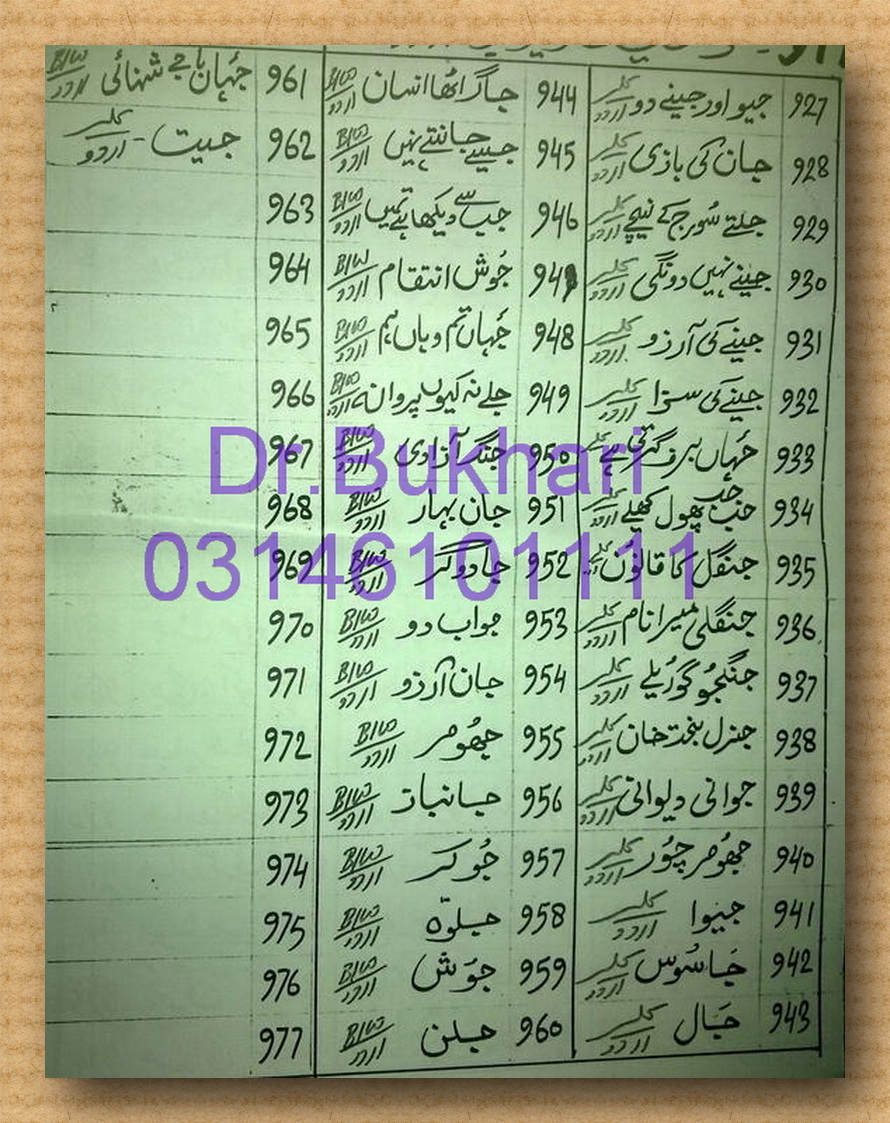 927 جیو اور جینے دو کلر اردو
928 جان کی بازی کلر اردو
929 جلتے سُورج کے نیچے کلر اردو
930 جینے نہیں دونگی کلر اردو
931 جینے کی آرزو کلر اردو
932 جینے کی سزا کلر اردو
933 جہاں برف گرتی ہے کلر
934 جب جب پھول کھلے کلر اردو
935 جنگل کا قانون کلر اردو
936 جنگلی میرا نام کلر اردو
937 جنگجو گوریلے کلر اردو
938 جنرل بخت خان کلر اردو
939 جوانی دیوانی کلر اردو
940 جھومر چور کلر اردو
941 جیوا کلر اردو
942 جَاسُوس کلر اردو
943 جَال کلر اردو
944 جاگ اٹھا انسان B/W اردو
945 جیسے جانتے نہیں B/W اردو
946 جب سے دیکھا ہے تمہیں B/W اردو
947 جُوش انتقام B/W اردو
948 جہاں تم وہاں ہم B/W اردو
949 جلے نہ کیوں پروانہ B/W اردو
950 جنگ آزادی B/W اردو
951 جان بہار B/W اردو
952 جادوگر B/W اردو
953 جواب دو B/W اردو
954 جان آرزو B/W اردو
955 جھُومر B/W اردو
956 جانباز B/W اردو
957 جُوکر B/W اردو
958 جلوہ B/W اردو
959 جوَش B/W اردو
960 جلن B/W اردو
961 جہاں باجے شہنائی B/W اردو
962 جیت - کلر اردو
963
964
965
966
967
968
969
970
971
972
973
974
975
976
977
Dr.Bukhari
03146101111